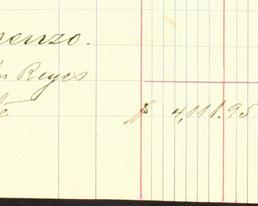 renzo.
Reyes
$ 4,111.95